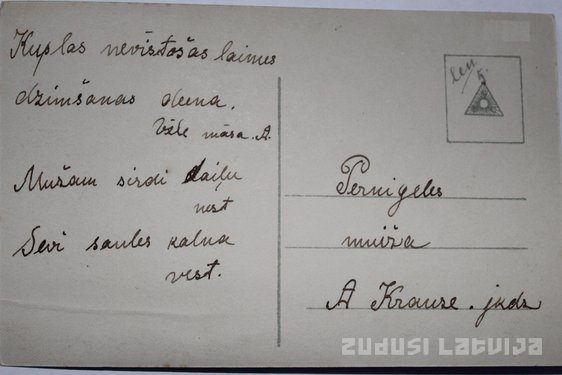 Kuplas nevīstošas laimes
dzimšanas deena.
Vēle māsa. A.
Mužam sirdi daiļu
nest
Sevi saules kalna
vest.
Pernigeles
muiža
A Krauze. jkdz
ZUDUSI LATVIJA